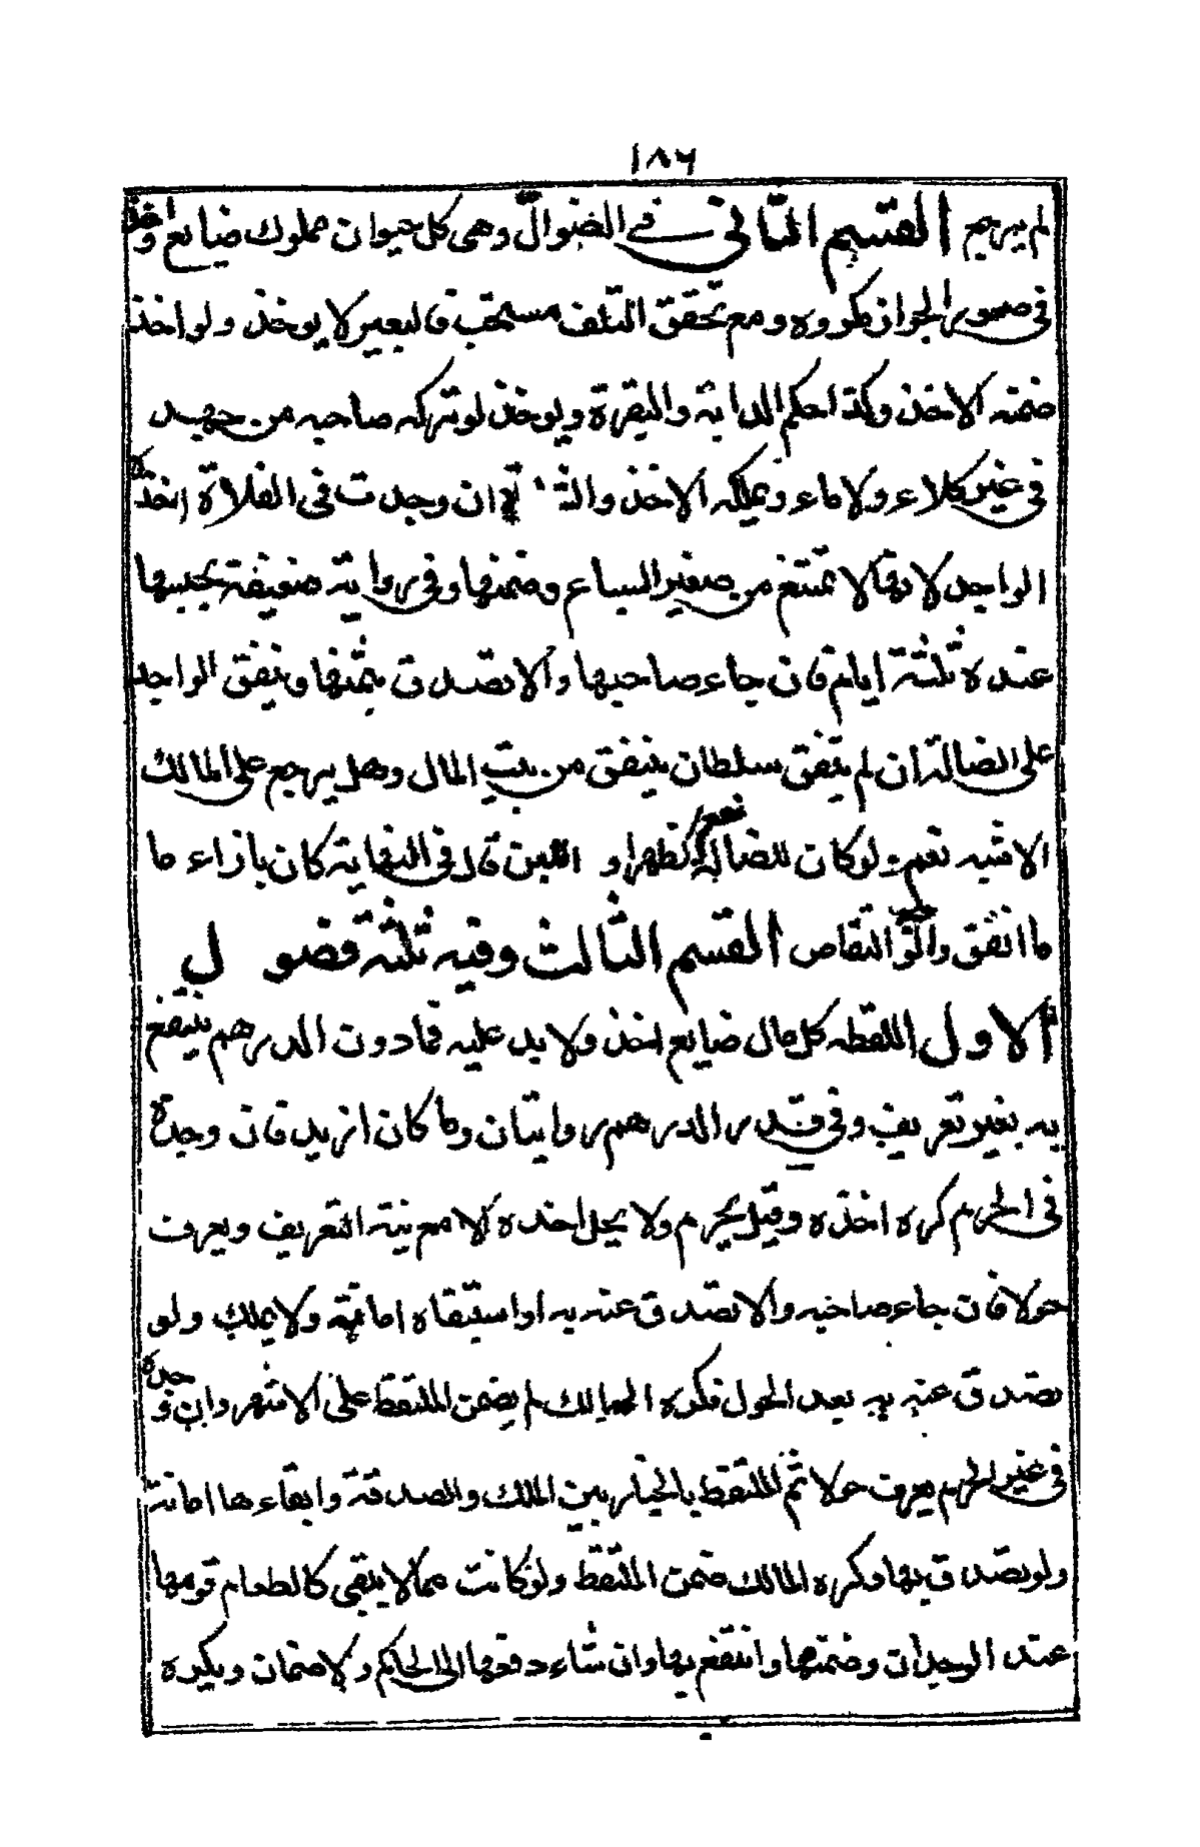 ١٨٦
لم يرجع القسم الثاني في الضوال وهي كل حيوان مملوك ضايع واخذ
في صورة الجواز مكروه ومع تحقق التلف مستحب فالبعير لا يوخذ ولو اخذ
ضمنه الاخذ وكذا حكم الدابة والبقرة ويوخذ لو تركه صاحبه من جهد
في غير كلاء ولا ماء ويملكه الاخذ والشاة ان وجدت في الفلاة اخذه
الواجد لانها لا تمتنع من صغير السباع وضمنها وفي رواية ضعيفة يحبسها
عنده ثلثة ايام فان جاء صاحبها والا تصدق بثمنها وينفق الواجد
على الضالة ان لم يتفق سلطان ينفق من بيت المال وهل يرجع على المالك
الاشبه نعم ولو كان للضالة نفع كالظهر او اللبن قال في النهاية كان بازاء ما
ما انفق والوجه التقاص القسم الثالث وفيه ثلثة فصول
الاول اللقطه كل مال ضايع اخذ ولا يد عليه فما دون الدرهم ينتفع
به بغير تعريف وفي قدر الدرهم روايتان وما كان ازيد فان وجدة
في الحرم كره اخذه وقيل يحرم ولا يحل اخذه الا مع نية التعريف ويعرف
حولا فان جاء صاحبه والا تصدق عنه به او استبقاه امانة ولا يملك ولو
تصدق عنه به بعد الحول فكره المالك لم يضمن الملتقط على الاشهر وان وجده
في غير الحرم يعرف حولا ثم الملتقط بالخيار بين الملك والصدقة وابقاءها امانة
ولو تصدق بها وكره المالك ضمن الملتقط ولو كانت مما لا يبقى كالطعام قومها
عند الوجدان وضمنها وانتفع بها وان شاء دفعها الى الحاكم ولا ضمان ويكره